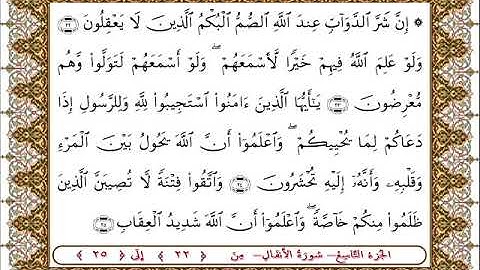 ۞ إِنَّ شَرَّ ٱلدَّوَآبِّ عِندَ ٱللَّهِ ٱلصُّمُّ ٱلْبُكْمُ ٱلَّذِينَ لَا يَعْقِلُونَ ﴿٢٢﴾
وَلَوْ عَلِمَ ٱللَّهُ فِيهِمْ خَيْرًا لَّأَسْمَعَهُمْ ۖ وَلَوْ أَسْمَعَهُمْ لَتَوَلَّوا۟ وَّهُم
مُّعْرِضُونَ ﴿٢٣﴾ يَـٰٓأَيُّهَا ٱلَّذِينَ ءَامَنُوا۟ ٱسْتَجِيبُوا۟ لِلَّهِ وَلِلرَّسُولِ إِذَا
دَعَاكُمْ لِمَا يُحْيِيكُمْ ۖ وَٱعْلَمُوٓا۟ أَنَّ ٱللَّهَ يَحُولُ بَيْنَ ٱلْمَرْءِ
وَقَلْبِهِۦ وَأَنَّهُۥٓ إِلَيْهِ تُحْشَرُونَ ﴿٢٤﴾ وَٱتَّقُوا۟ فِتْنَةً لَّا تُصِيبَنَّ ٱلَّذِينَ
ظَلَمُوا۟ مِنكُمْ خَآصَّةً ۖ وَٱعْلَمُوٓا۟ أَنَّ ٱللَّهَ شَدِيدُ ٱلْعِقَابِ ﴿٢٥﴾
الجزء التاسع - سورة الأنفال - من ﴿ ٢٢ ﴾ إلى ﴿ ٢٥ ﴾